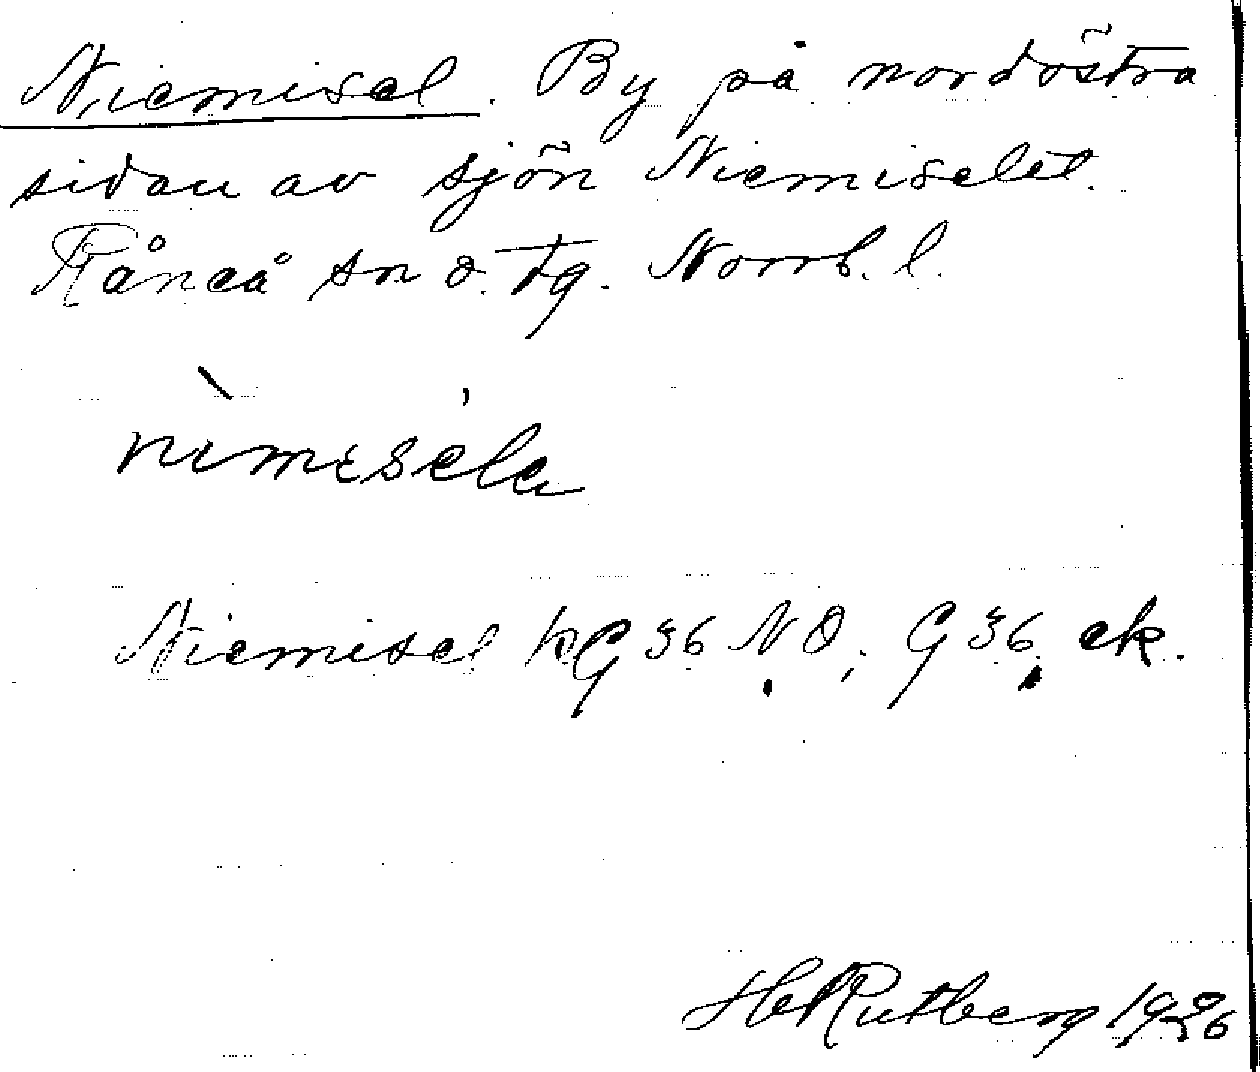 Niemisel. By på nordöstra
sidan av sjön Niemiselet.
Råneå sn o. tg. Norrb. l.
nìmisela
Niemisel kG 36 NO; G 36 ek.
Rutberg 1926